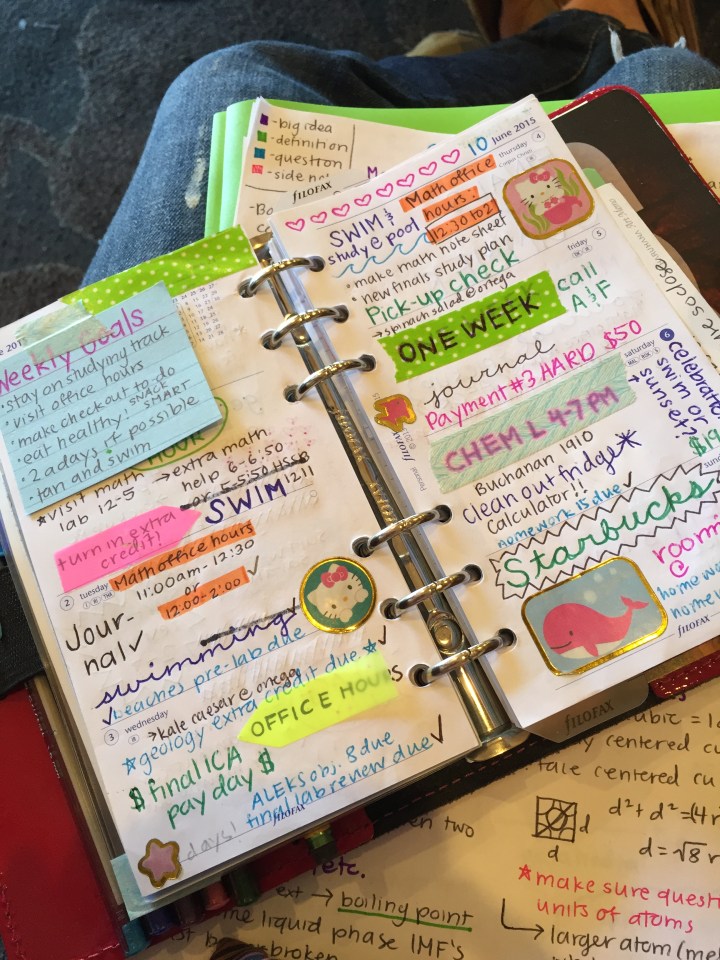 -big idea
-definition
-question
-side
FILOFAX
Weekly Goals
• stay on studying track
• visit office hours
• make checkout to do
• eat healthy! SNACK SMART
• 2 adays if possible
• tan and swim
HOUR
★ visit math lab 12-5
→ extra math help 6-6:50
or 5-5:50 HSSB 1211
SWIM
turn in extra credit!
2 tuesday
Math office hours
11:00am-12:30
or
12:00-2:00
Jour-
nal✓
swimming
✓Leaches pre-lab due
3 wednesday
→ kale caesar @ ortega
★geology extra credit due★
OFFICE HOURS
$ final ICA
pay day $
ALEKS obj. 8 due
final lab review due✓
FILOFAX
days!
10 June 2015
thursday 4
Corpus Christi
SWIM &
study @ pool
Math office
hours:
12:30 to 2
• make math note sheet
• new finals study plan
Pick-up check
→ spinach salad @ ortega
friday 5
ONE WEEK
call
A & F
journal
Payment #3 HARD $50
saturday 6
celebrate
swim or
→ sunset?
CHEM L 4-7 PM
FILOFAX
Personal
Buchanan 1910
clean out fridge*
Calculator!!
homework is due✓
Starbucks
room
@
home wo
home w
FILOFAX
so close
FILOFAX
cubic =
centered cu
face centered cu
d² + d² = (4r
d
d
d = √8 r
★make sure quest
units of atoms
→ larger atom (me
two
etc.
ext → boiling point
liquid phase IMF's
broken